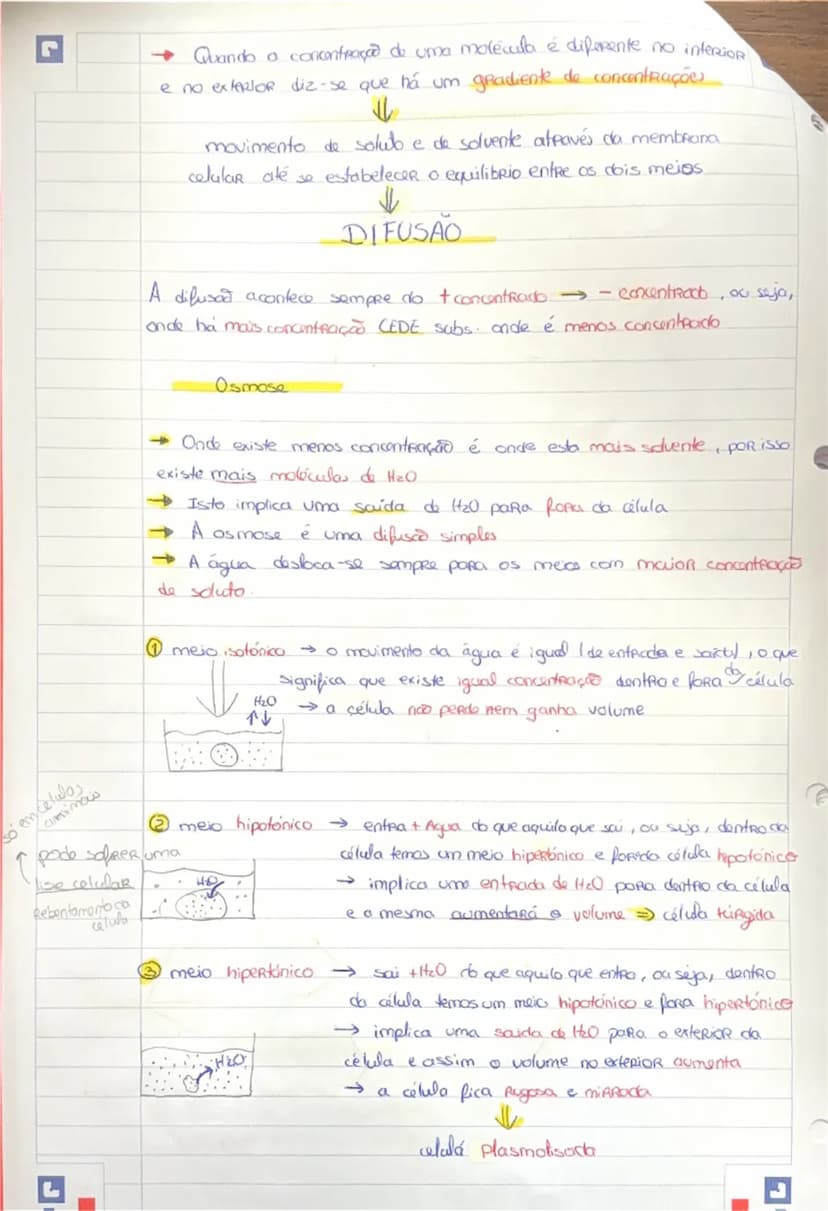 → Quando a concentração de uma molécula é diferente no interior
e no exterior diz-se que há um gradiente de concentrações
⇓
movimento de soluto e de solvente através da membrana
celular até se estabelecer o equilibrio entre os dois meios
⇓
DIFUSÃO
A difusão acontece sempre do + concentrado → - concentrado, ou seja,
onde há mais concentração CEDE subs. onde é menos concentrado
Osmose
→ Onde existe menos concentração é onde esta mais solvente, por isso
existe mais moléculas de H2O
→ Isto implica uma saída de H2O para fora da célula
→ A osmose é uma difusão simples
→ A água desloca-se sempre para os meios com maior concentração
de soluto.
① meio isotónico → o movimento da água é igual (de entrada e saída), o que
significa que existe igual concentração dentro e fora da célula
H2O → a célula não perde nem ganha volume
↑↓
só em células
animais
② meio hipotónico → entra + Agua do que aquilo que sai, ou seja, dentro da
↑ pode sofrer uma célula temos um meio hipertónico e fora da célula hipotónico
lise celular H2O → implica uma entrada de H2O para dentro da célula
Rebentamento da e a mesma aumentará o volume ⇒ célula túrgida
célula
③ meio hipertónico → sai + H2O do que aquilo que entra, ou seja, dentro
da célula temos um meio hipotónico e fora hipertónico
→ implica uma saida de H2O para o exterior da
H2O célula e assim o volume no exterior aumenta
→ a célula fica rugosa e mirrada
⇓
celulá plasmolisada